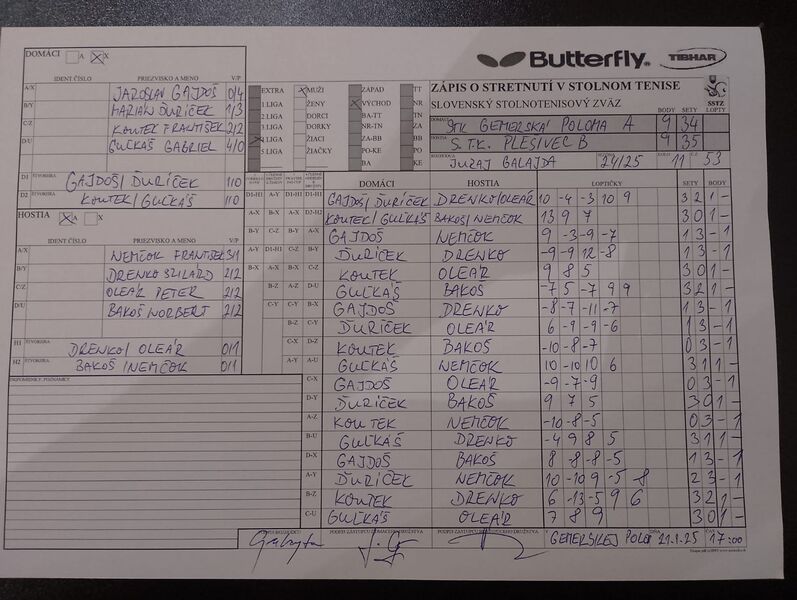 Butterfly.
TIBHAR
DOMÁCI A X
IDENT ČÍSLO PRIEZVISKO A MENO V/P
A/X JAROSLAV GAJDOŠ 0/4
B/Y MARIAN ĎURÍČEK 1/3
C/Z KOUTEK FRANTIŠEK 2/2
D/U GUĽKÁŠ GABRIEL 4/0
D1 ŠTVORHRA GAJDOŠ/ ĎURÍČEK 1/0
D2 KOUTEK/ GUĽKÁŠ 1/0
HOSTIA A X
IDENT ČÍSLO PRIEZVISKO A MENO V/P
A/X NEMČOK FRANTIŠEK 3/1
B/Y DRENKO SZILÁRD 2/2
C/Z OLEÁR PETER 2/2
D/U BAKOŠ NORBERT 2/2
H1 ŠTVORHRA DRENKO/ OLEÁR 0/1
H2 BAKOŠ /NEMČOK 0/1
PRIPOMIENKY, POZNÁMKY:
EXTRA MUŽI ZÁPAD TT
1 LIGA ŽENY VÝCHOD NR
DORCI BA-TT TN
DORKY NR-TN ZA
LIGA ŽIACI ZA-BB BB
5 LIGA ŽIAČKY PO-KE PO
BA KE
ZÁPIS O STRETNUTÍ V STOLNOM TENISE
SLOVENSKÝ STOLNOTENISOVÝ ZVÄZ
SSTZ
BODY SETY LOPTY
STK GEMERSKÁ POLOMA A 9 34
S.T.K. PLEŠIVEC B 9 35
JURAJ GALAJDA 24/25 11 53
DOMÁCI HOSTIA LOPTIČKY SETY BODY
D1-H1 A-Y D1-H1 D1-H1 GAJDOŠ/ ĎURÍČEK DRENKO/OLEÁR 10 -4 -3 10 9 3 2 1 -
A-X B-X A-X D2-H2 KOUTEK/ GUĽKÁŠ BAKOŠ/ NEMČOK 13 9 7 3 0 1 -
B-Y C-Z B-Y A-X GAJDOŠ NEMČOK 9 -3 -9 -7 1 3 - 1
A-Y D1-H1 C-Z B-Y ĎURÍČEK DRENKO -9 -9 12 -8 1 3 - 1
B-X A-X B-X C-Z KOUTEK OLEÁR 9 8 5 3 0 1 -
B-Z A-Z D-U GUĽKÁŠ BAKOŠ -7 5 -7 9 9 3 2 1 -
C-Y C-Y B-X GAJDOŠ DRENKO -8 -7 -11 -7 1 3 - 1
B-Z C-Y ĎURÍČEK OLEÁR 6 -9 -9 -6 1 3 - 1
C-X D-Z KOUTEK BAKOŠ -10 -8 -7 0 3 - 1
A-Y A-U GUĽKÁŠ NEMČOK 10 -10 10 6 3 1 1 -
C-X GAJDOŠ OLEÁR -9 -7 -9 0 3 - 1
D-Y ĎURÍČEK BAKOŠ 9 7 5 3 0 1 -
A-Z KOUTEK NEMČOK -10 -8 -5 0 3 - 1
B-U GUĽKÁŠ DRENKO -4 9 8 5 3 1 1 -
D-X GAJDOŠ BAKOŠ 8 -8 -8 -5 1 3 - 1
A-Y ĎURÍČEK NEMČOK 10 -10 9 -5 -8 2 3 - 1
B-Z KOUTEK DRENKO 6 -13 -5 9 6 3 2 1 -
C-U GUĽKÁŠ OLEÁR 7 8 9 3 0 1 -
PODPIS ROZHODCU PODPIS ZÁSTUPCU DOMÁCEHO DRUŽSTVA PODPIS ZÁSTUPCU HOSŤUJÚCEHO DRUŽSTVA GEMERSKEJ POLO 21.1.25 17:00